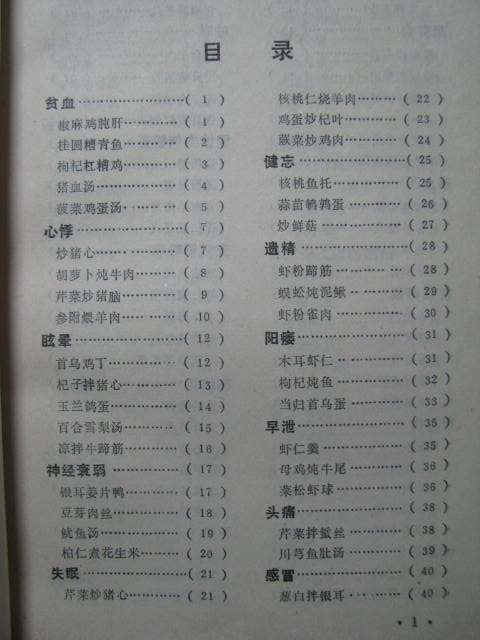 目 录
贫血……………………( 1 )
椒麻鸡肫肝……………( 1 )
桂圆糟青鱼……………( 2 )
枸杞杠糟鸡……………( 3 )
猪血汤…………………( 4 )
菠菜鸡蛋汤……………( 5 )
心悸……………………( 7 )
炒猪心…………………( 7 )
胡萝卜炖牛肉…………( 8 )
芹菜炒猪脑……………( 9 )
参附煨羊肉……………( 10 )
眩晕……………………( 12 )
首乌鸡丁………………( 12 )
杞子拌猪心……………( 13 )
玉兰鸽蛋………………( 14 )
百合雪梨汤……………( 15 )
凉拌牛蹄筋……………( 16 )
神经衰弱………………( 17 )
银耳姜片鸭……………( 17 )
豆芽肉丝………………( 18 )
鱿鱼汤…………………( 19 )
柏仁煮花生米…………( 20 )
失眠……………………( 21 )
芹菜炒猪心……………( 21 )
核桃仁烧羊肉…………( 22 )
鸡蛋炒杞叶……………( 23 )
蕨菜炒鸡肉……………( 24 )
健忘……………………( 25 )
核桃鱼托………………( 25 )
蒜苗鹌鹑蛋……………( 26 )
炒鲜菇…………………( 27 )
遗精……………………( 28 )
虾粉蹄筋………………( 28 )
蜈蚣炖泥鳅……………( 29 )
虾粉雀肉………………( 30 )
阳痿……………………( 31 )
木耳虾仁………………( 31 )
枸杞炖鱼………………( 32 )
当归首乌蛋……………( 33 )
早泄……………………( 35 )
虾仁羹…………………( 35 )
母鸡炖牛尾……………( 36 )
菜松虾球………………( 36 )
头痛……………………( 38 )
芹菜拌蜇丝……………( 38 )
川芎鱼肚汤……………( 39 )
感冒……………………( 40 )
葱白拌银耳……………( 40 )
· 1 ·